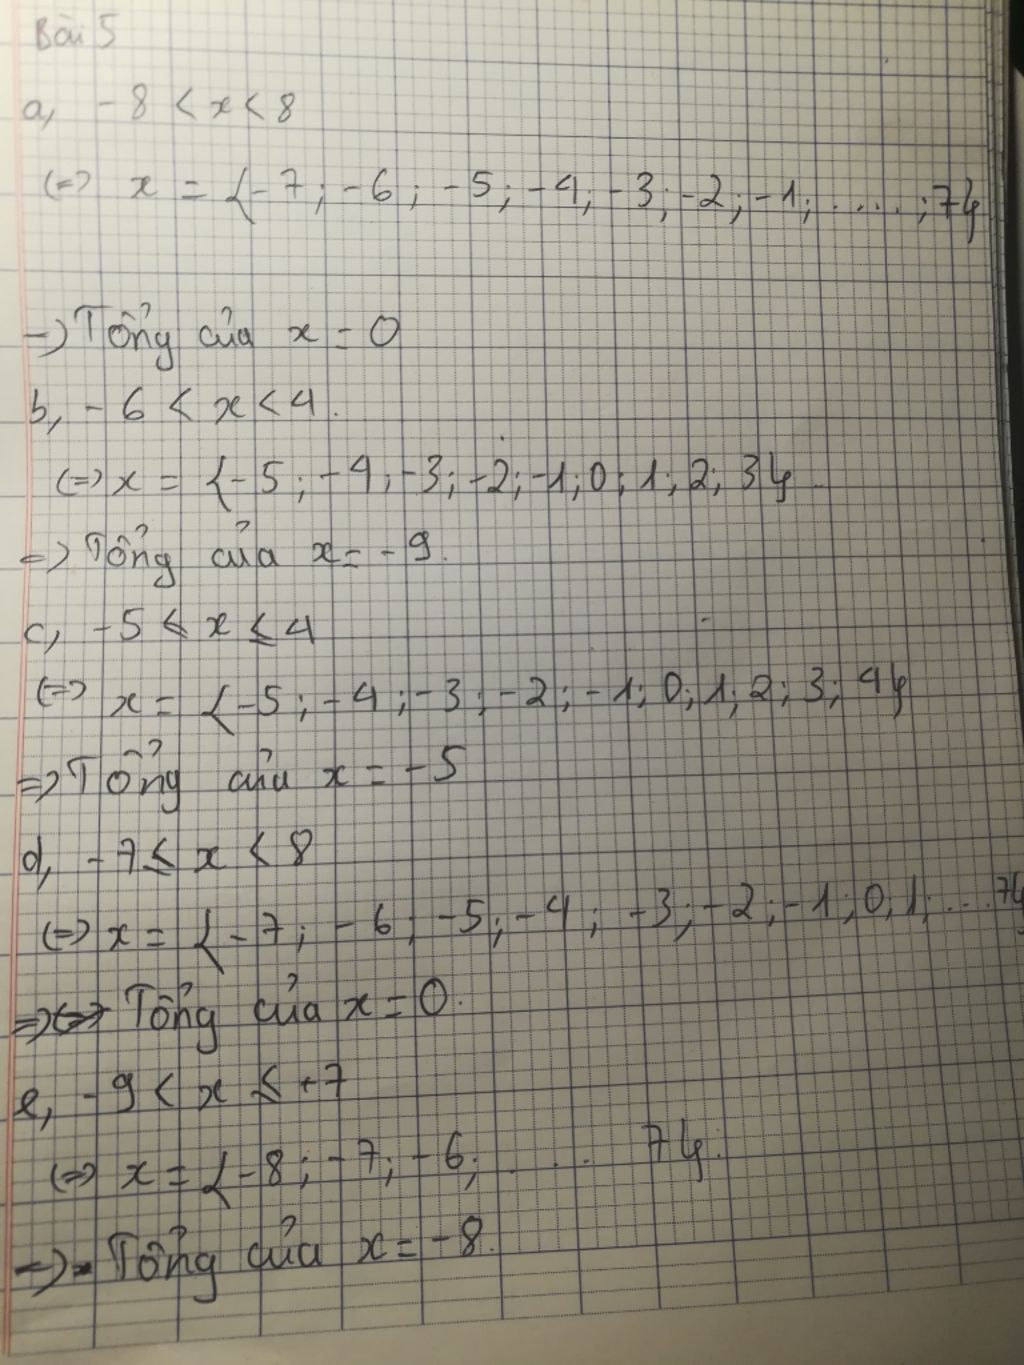 Bài 5
a, -8 < x < 8
(=) x = {-7; -6; -5; -4; -3; -2; -1; ....; 7}
=) Tổng của x = 0
b, -6 < x < 4.
(=) x = {-5; -4; -3; -2; -1; 0; 1; 2; 3}
=) Tổng của x = -9.
c, -5 ≤ x ≤ 4
(=) x = {-5; -4; -3; -2; -1; 0; 1; 2; 3; 4}
=) Tổng của x = -5
d, -7 ≤ x < 8
(=) x = {-7; -6; -5; -4; -3; -2; -1; 0, 1; ...7}
=) Tổng của x = 0.
e, -9 < x ≤ +7
(=) x = {-8; -7; -6; .... 7}.
=) Tổng của x = -8.